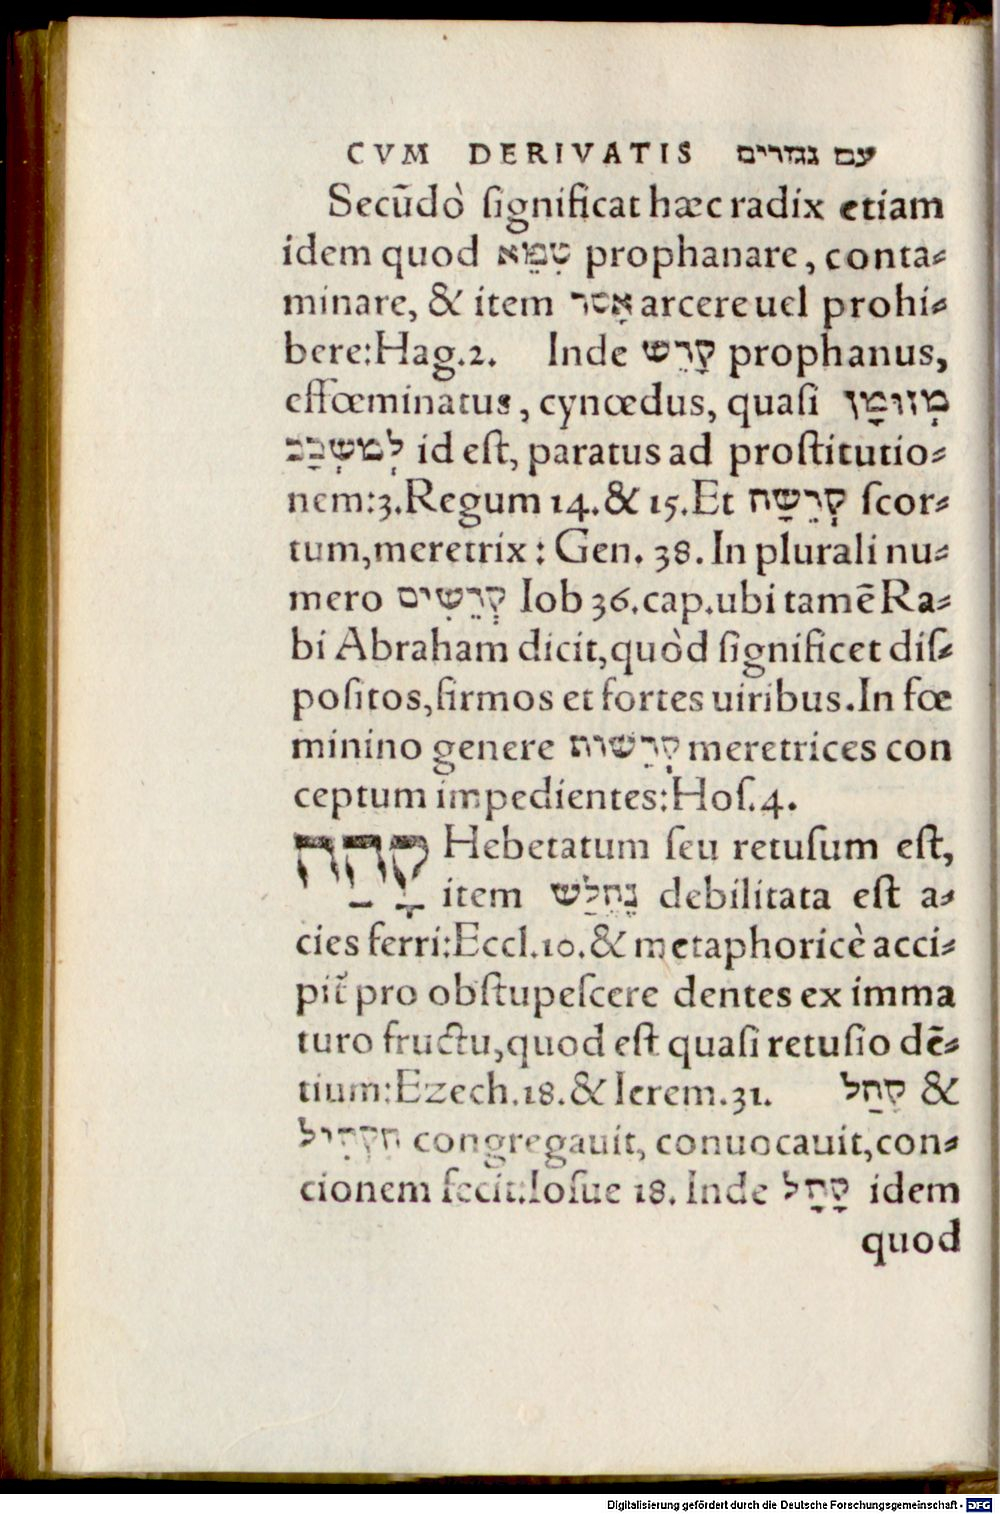 CVM DERIVATIS עם נגזרים
Secũdò ſignificat hæc radix etiam
idem quod טִמֵּא prophanare, conta⸗
minare, & item אָסר arcere uel prohi⸗
bere:Hag.2. Inde קָדֵשׁ prophanus,
effœminatus, cynœdus, quaſi מְזוּמָּן
לְמִשְׁכָּב id eſt, paratus ad proſtitutio⸗
nem:3.Regum 14.& 15.Et קְדֵשָׁה ſcor⸗
tum,meretrix : Gen. 38. In plurali nu⸗
mero קְדֵשִׁים Iob 36.cap.ubi tamẽ Ra⸗
bi Abraham dicit,quòd ſignificet diſ⸗
poſitos,firmos et fortes uiribus.In fœ
minino genere קְדֵשׁוֹת meretrices con
ceptum impedientes:Hoſ.4.
קָהָה Hebetatum ſeu retuſum eſt,
item נֶחֱלַשׁ debilitata eſt a⸗
cies ferri:Eccl.10.& metaphoricè acci⸗
pit̃ pro obſtupeſcere dentes ex imma
turo fructu,quod eſt quaſi retuſio dẽ⸗
tium:Ezech.18.& Ierem.31. קָהַל &
הִקְהִיל congregauit, conuocauit,con⸗
cionem fecit:Ioſue 18. Inde קָהָל idem
quod
Digitalisierung gefördert durch die Deutsche Forschungsgemeinschaft - DFG